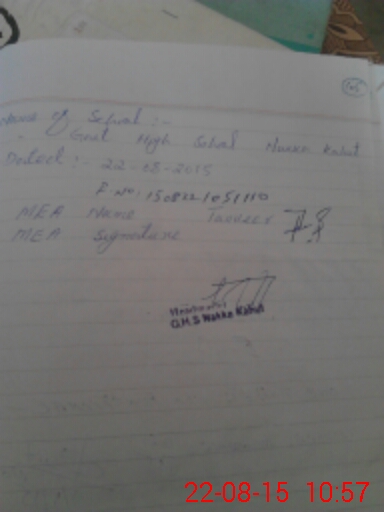 Name of School :-
Govt High School Nakka Kahut
Dated :- 22-08-2015
F. No: 150822-1051110
MEA Name Tanveer
MEA Signature
G.H.S Nakka Kahut
22-08-15 10:57